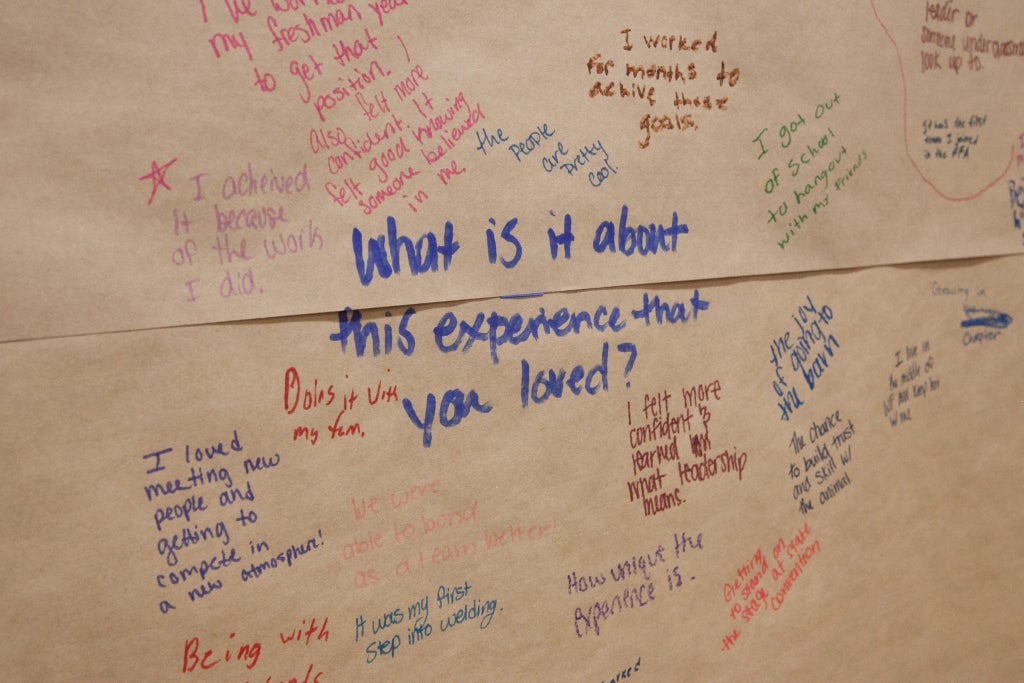 my freshman year
to get that
position. I
also felt more
confident. It
felt good knowing
someone believed
in me.
I acheived
it because
of the work
I did.
the
people
are
pretty
cool!
I worked
for months to
achive those
goals.
I got out
of school
to hangout
with my friends
leader or
look up to.
It was the first
team I joined
in the FFA
What is it about
this experience that
you loved?
Doing it with
my fam.
I loved
meeting new
people and
getting to
compete in
a new atmosphere!
We were
able to bond
as a team better!
Being with
It was my first
step into welding.
How unique the
experience is.
I felt more
confident &
learned
what leadership
means.
the joy
of going to
the barn
The chance
to build trust
and skill w/
the animal
Getting
to stand on
the stage at state
convention
Growing in
Chapter
I live in
the middle of